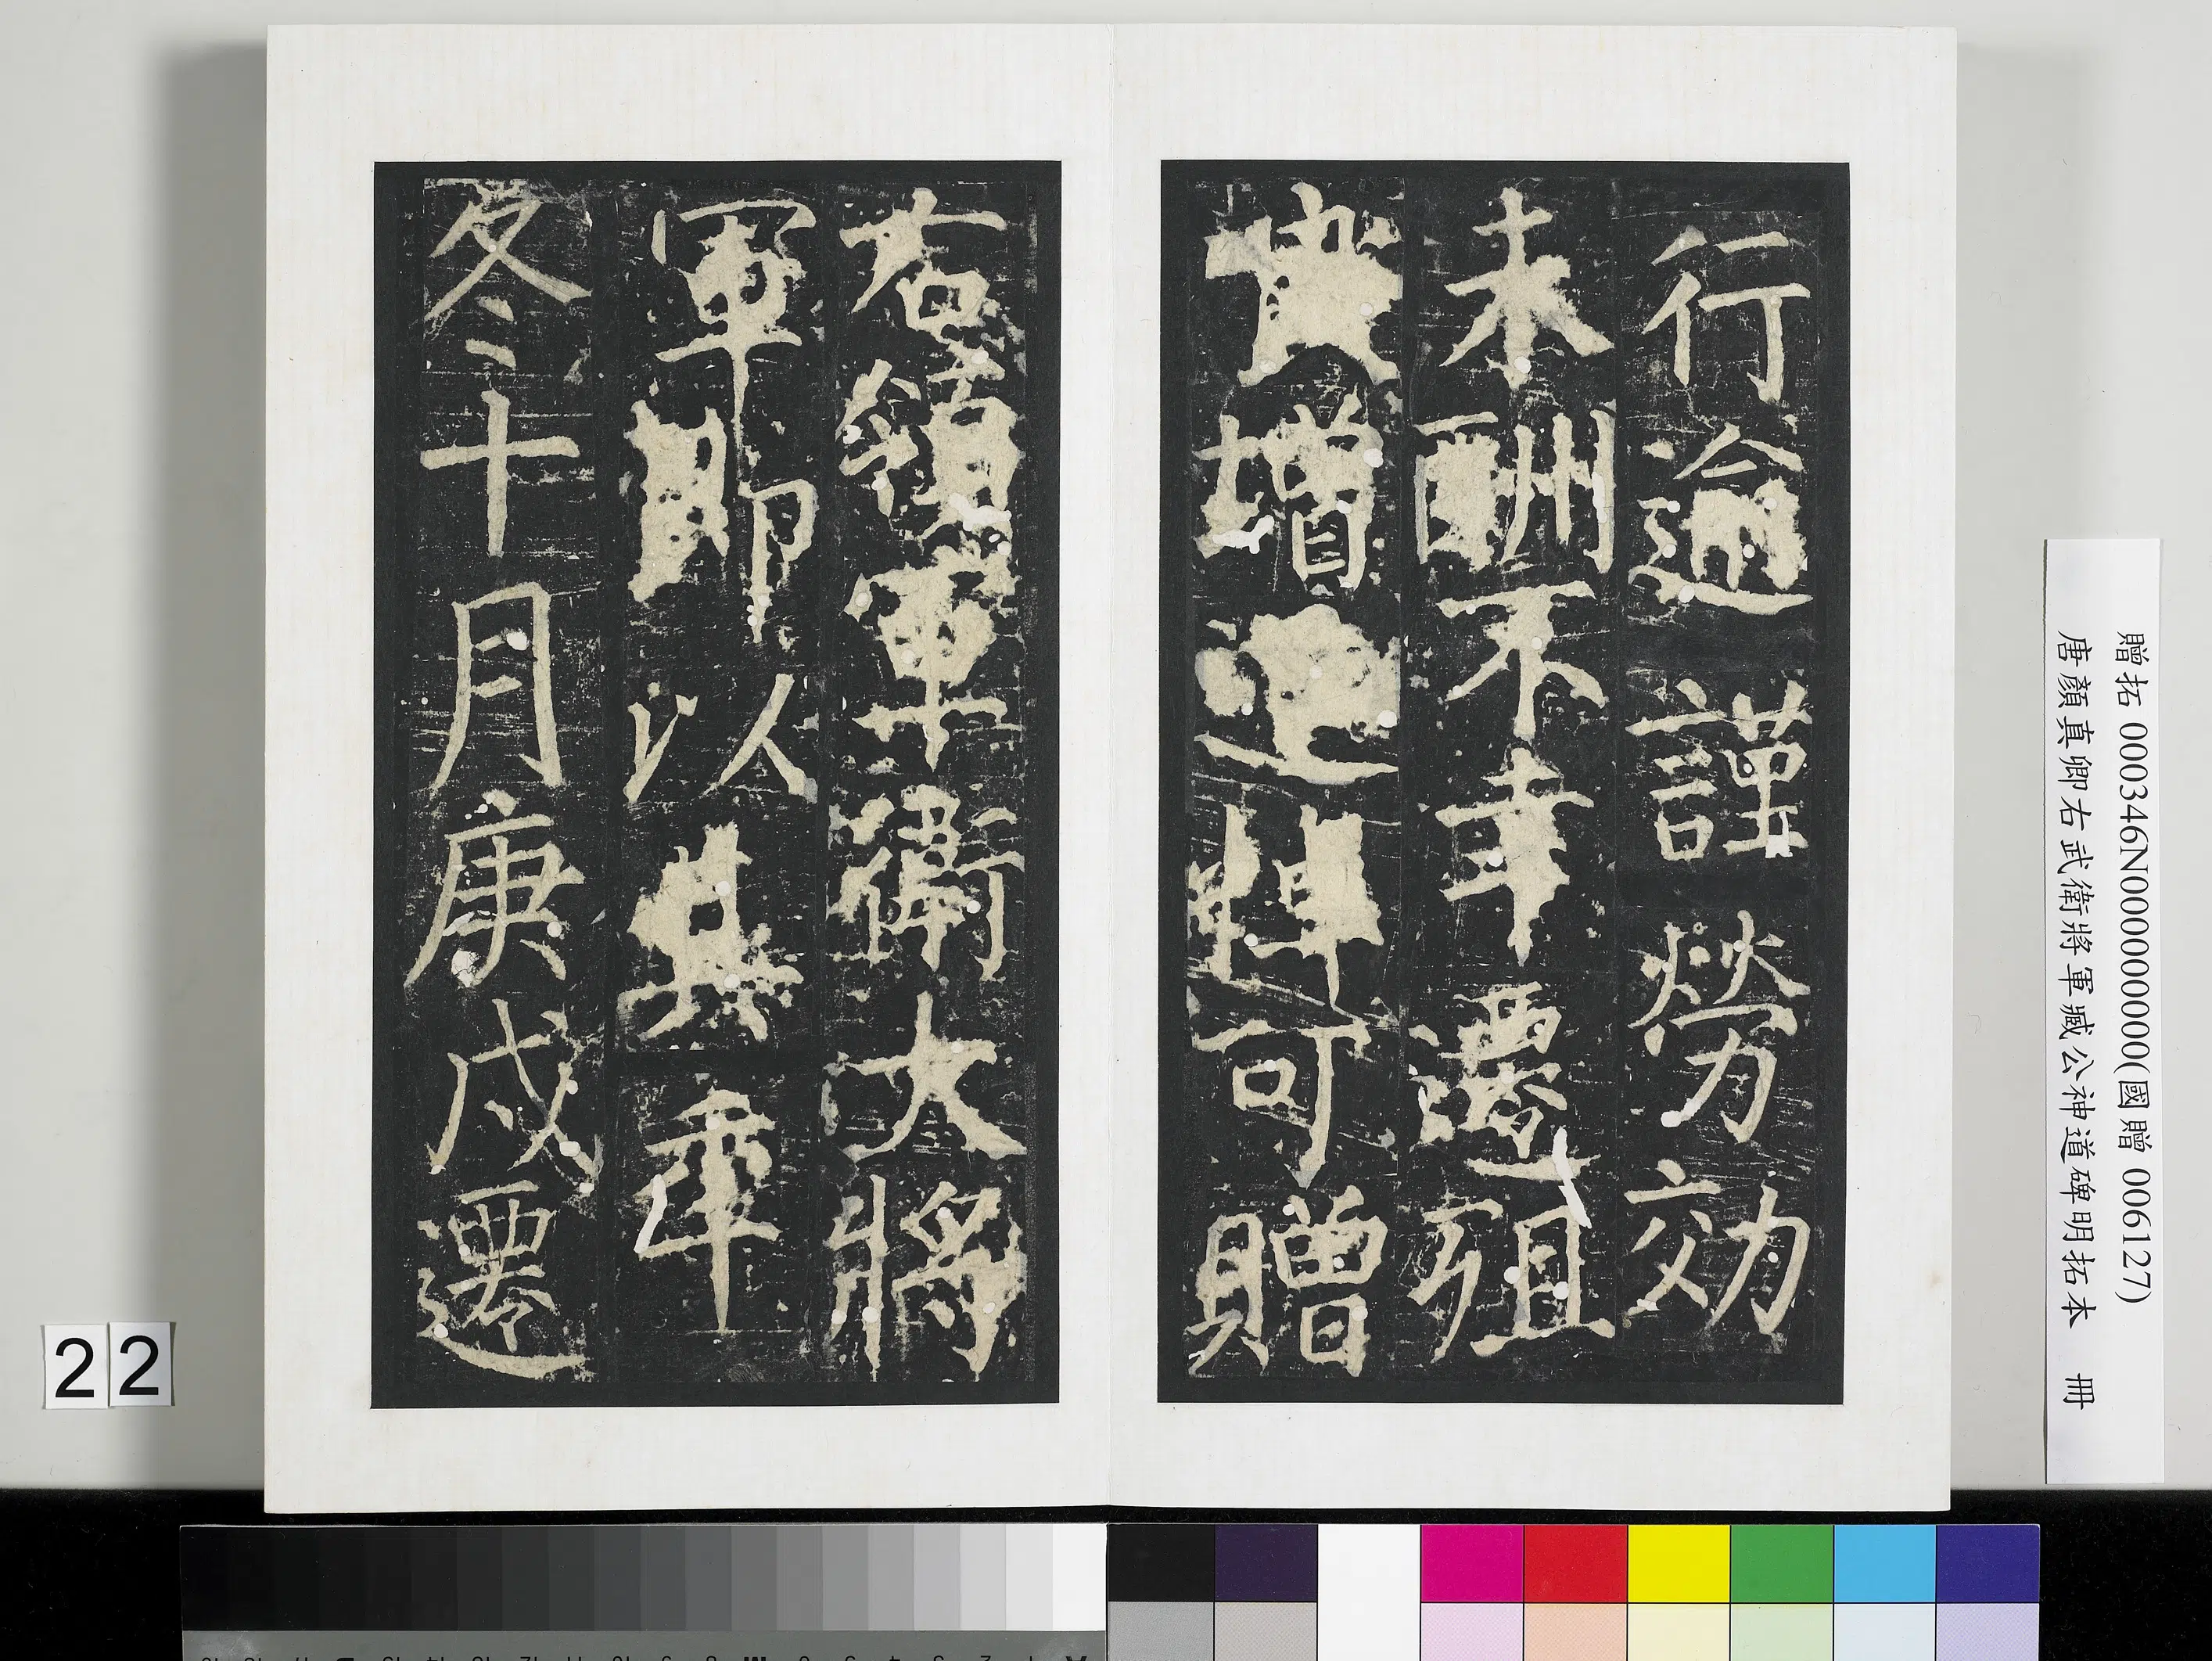 行逾謹勞効
未酬不幸遷殂
實增追悼可贈
右領軍衛大將
軍即以其年
冬十月庚戌遷
贈拓 000346N000000000(國贈 006127)
唐顏真卿右武衛將軍臧公神道碑明拓本 冊
22